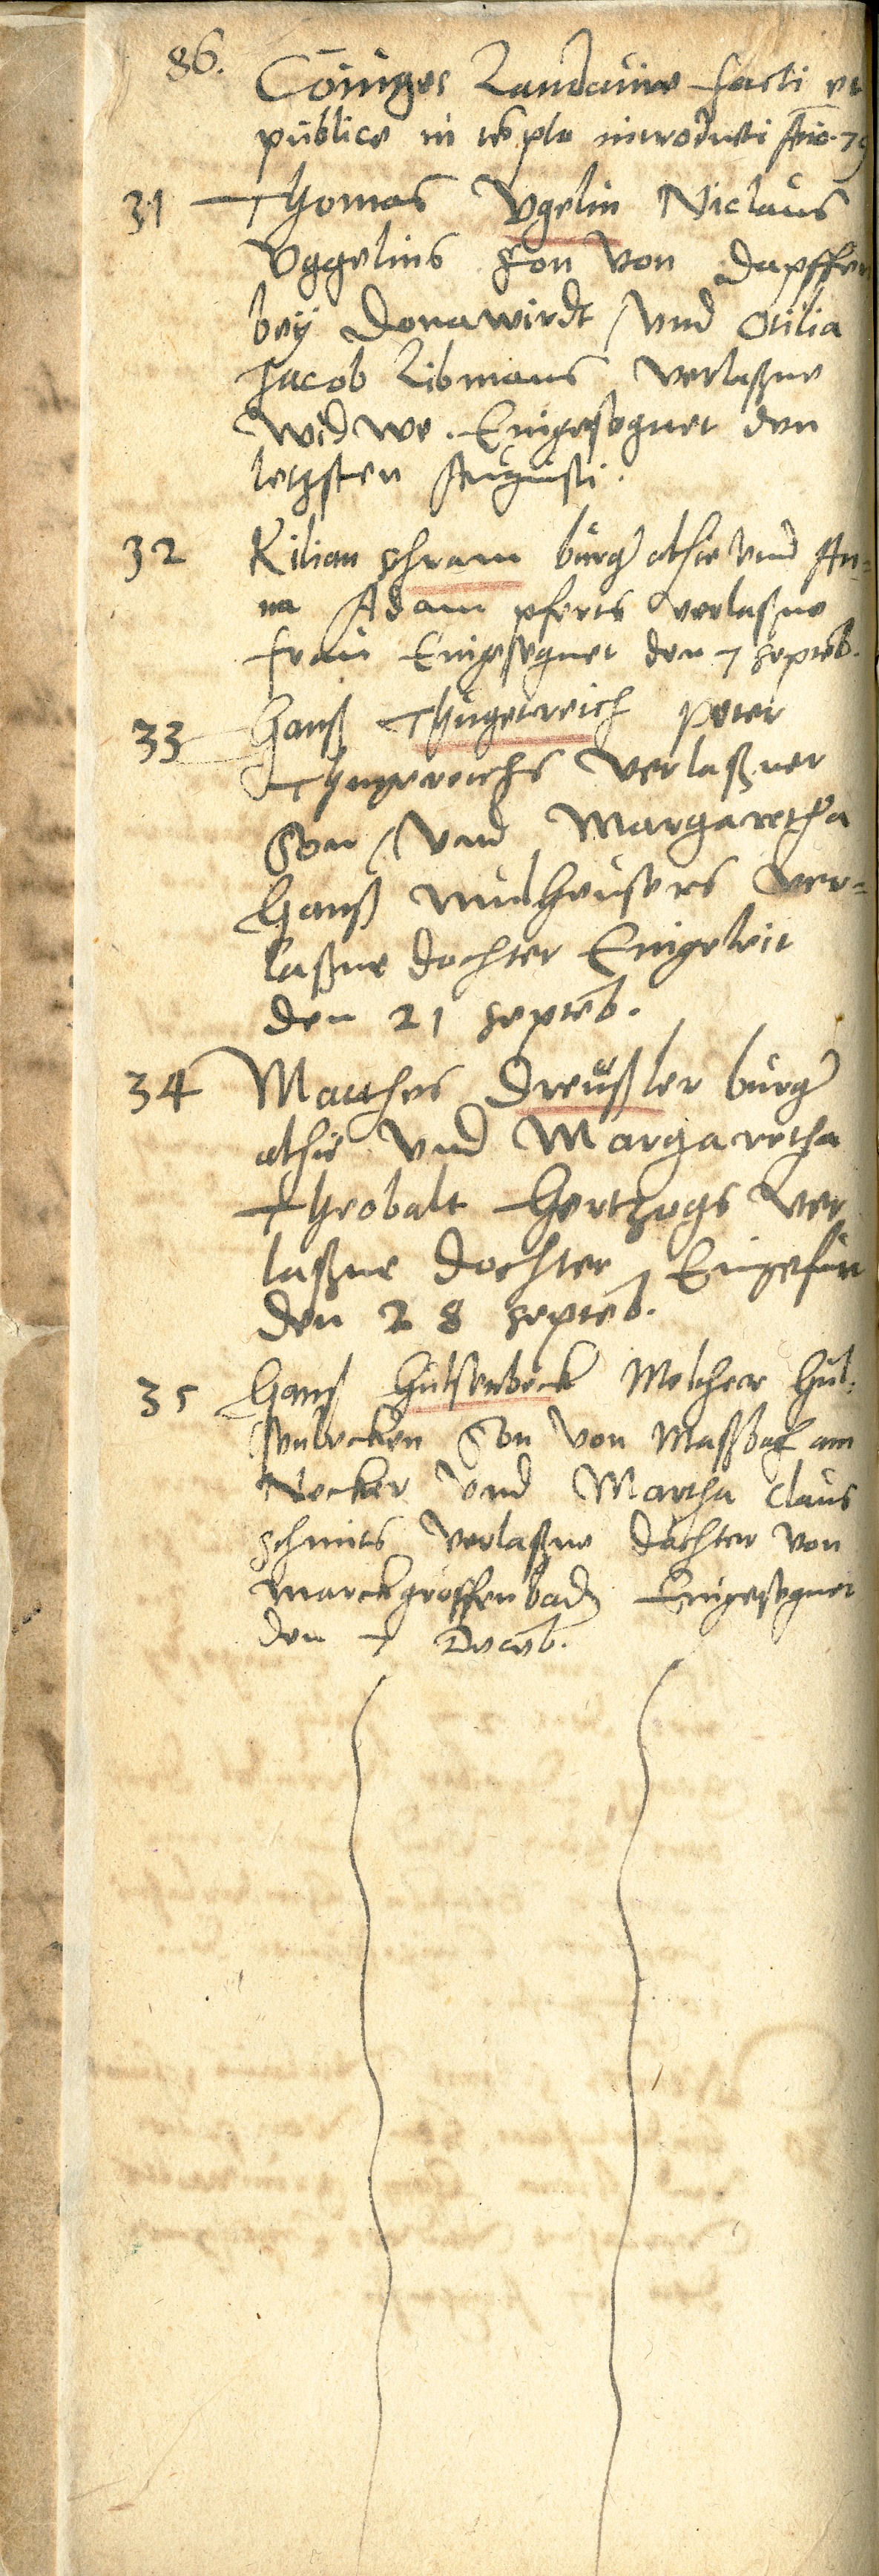 86.
Cöniges Landauiae facti et
publice in tēplo introducti Año. 79
31 Thomas Vgelin Niclaus
Vggelins son von Dapffen
beÿ Donawirdt / vnd Otilia
Jacob Libmans verlaßne
Widwe. Eingesegnet den
letzsten Augusti.
32 Kilian schram burg alhie vnd An=
na Adam pferts verlaßne
fraw Eingesegnet den 7 septēb.
33 Hanß Thügetreich peter
verlaßner
Son / vnd Margaretha
Hanß mülheusers ver=
laßne dochter Eingeleit
den 21 septēb.
34 Matthes Dreüßler burg
alhie vnd Margaretha
Theobalt Hertzogs ver
laßne dochter Eingefürt
den 28 septēb.
35 Hanß Hülsenbeck Melcher Hül=
senbecken Son von Maßbach am
Necker vnd Martha Claus
schmits verlaßne dochter von
Marckgroffenbaden Eingesegnet
den 7 Decēb.